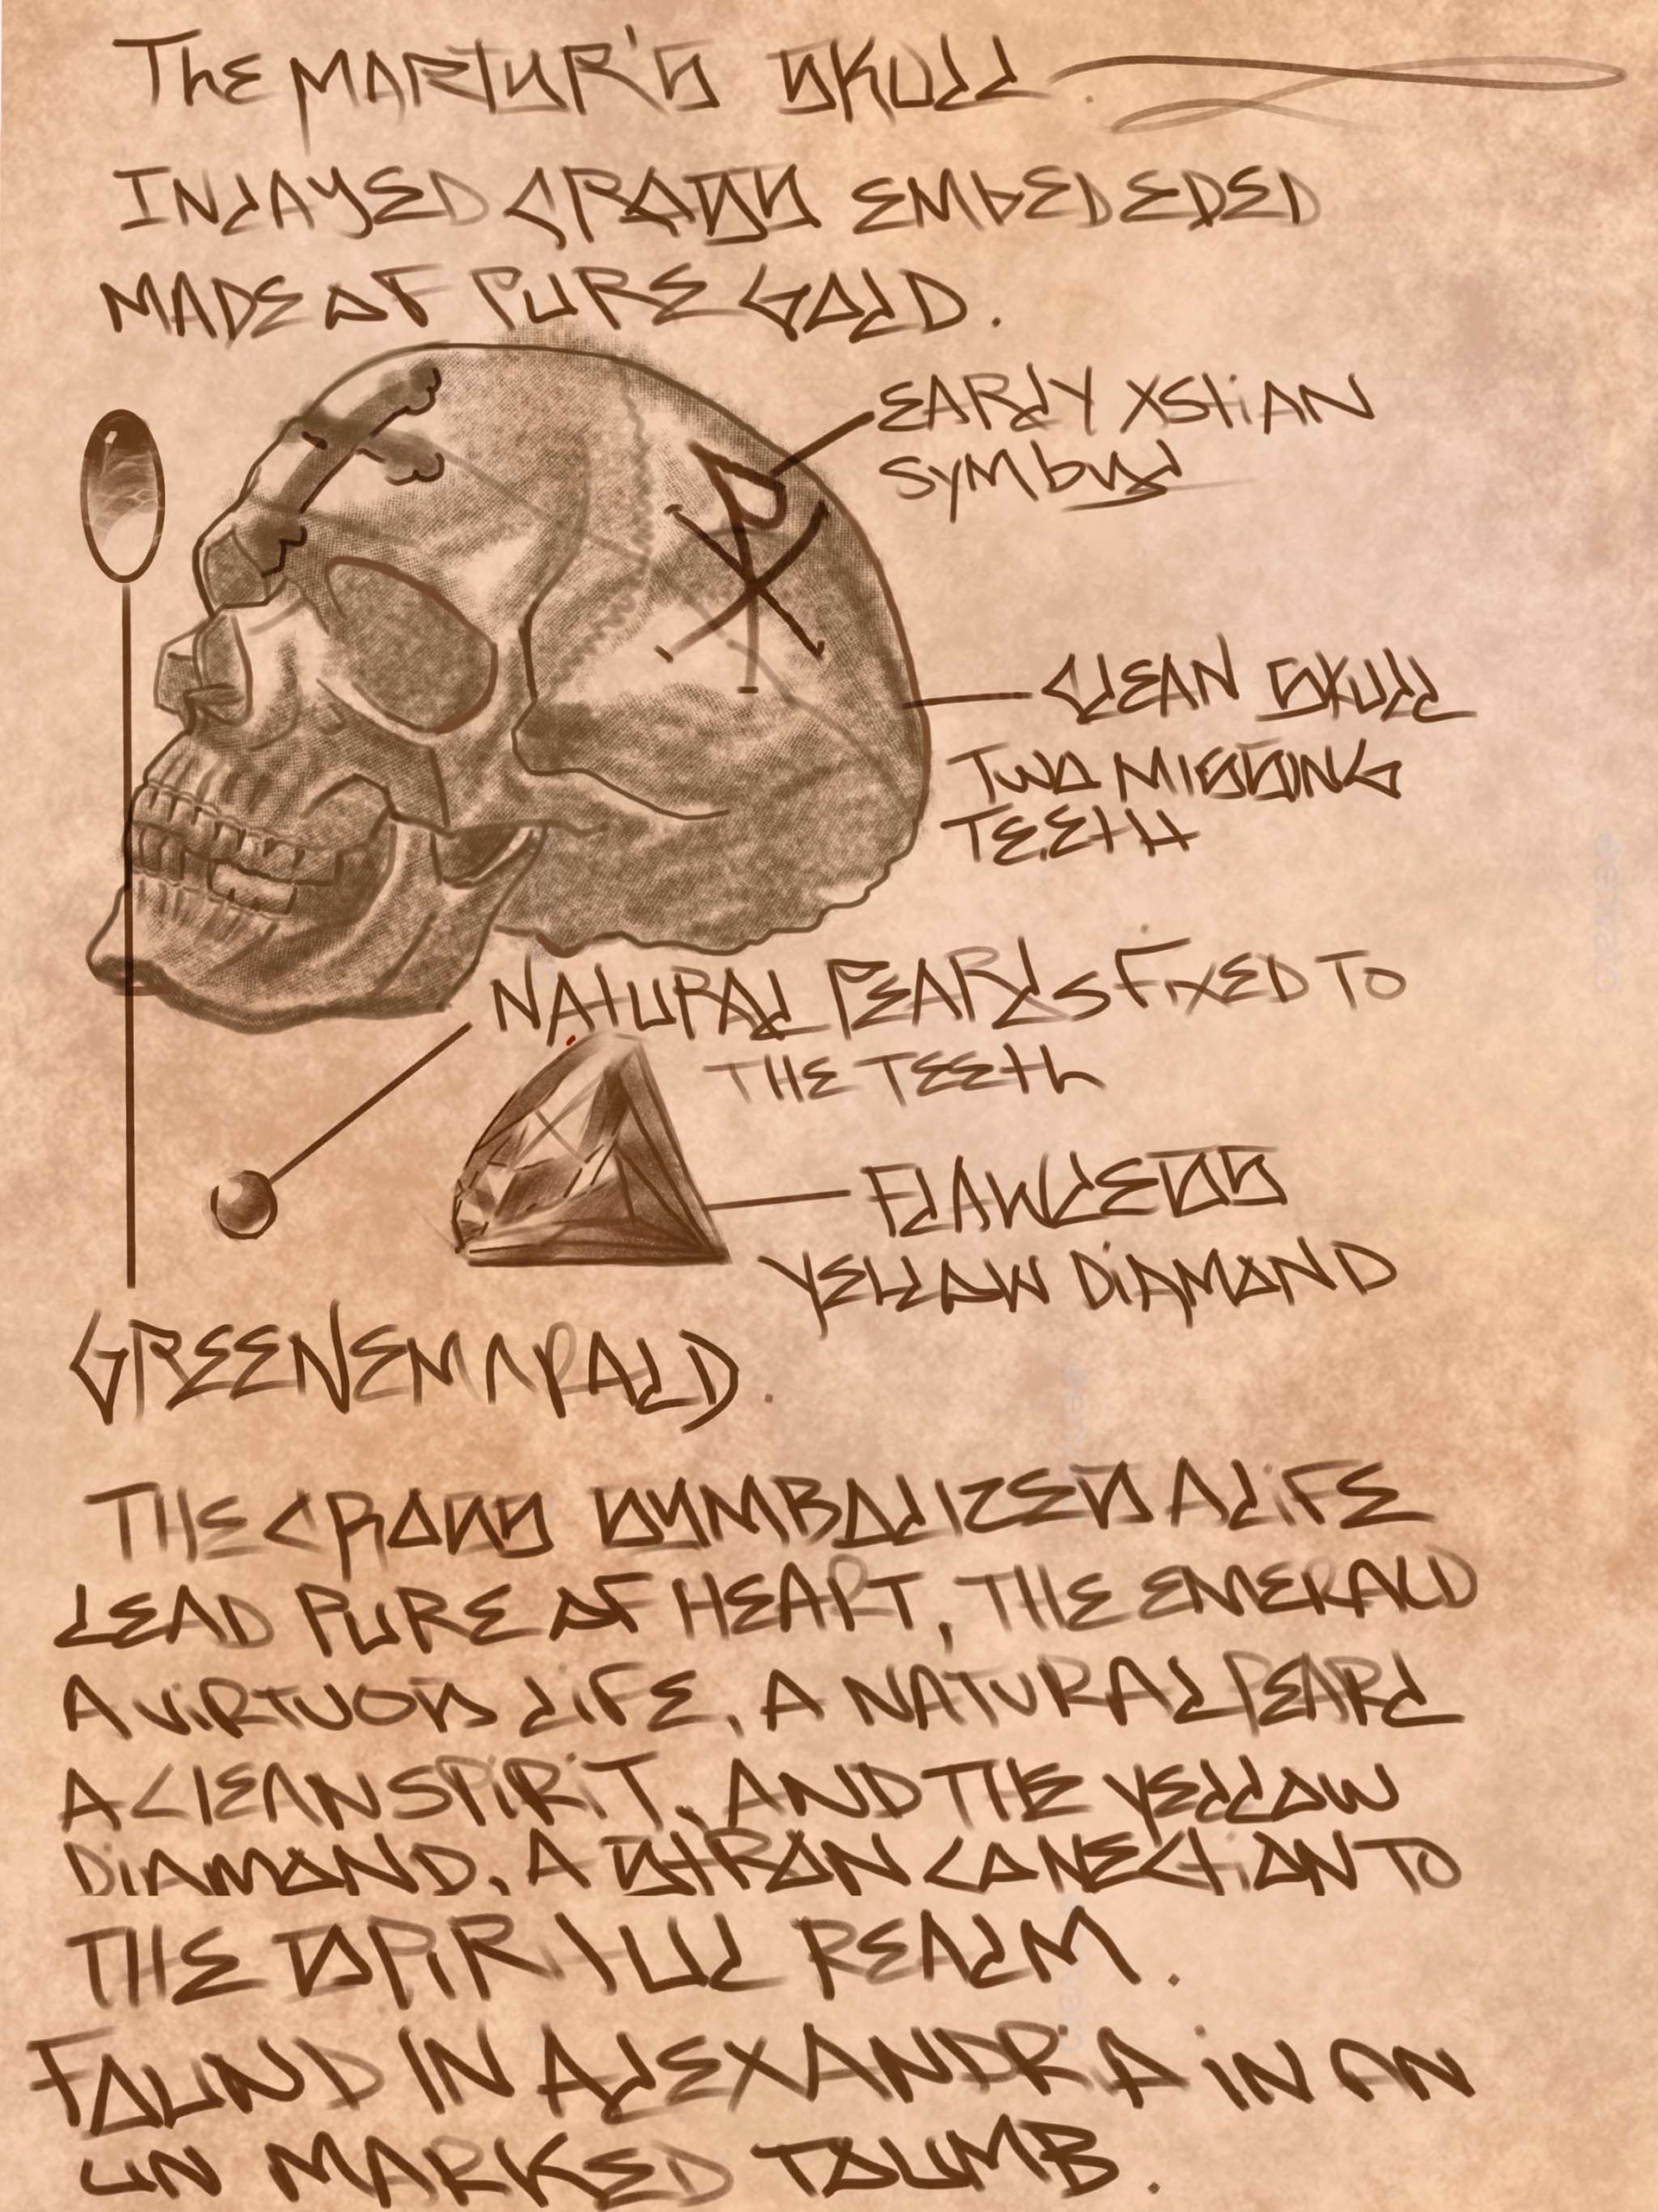 The MARTUR'S SKULL
INLAYED CROSS EMbEDEDED
MADE OF PURE GOLD.
EARLY XStiAN
SYMbUL
CLEAN SKULL
TWO MISSING
TEETH
NATURAL PEARLS FIXED TO
THE TEETh
FLAWLESS
YELLOW DiAMOND
GREEN EMARALD.
THE CROSS SYMBOLIZES A LiFE
LEAD PURE OF HEART, THE EMERALD
A ViRTUOS LiFE, A NATURAL PEARL
A CLEAN SPiRiT, AND THE YELLOW
DiAMOND, A STRON CONECTiON TO
THE SPiRITUL REALM.
FOUND IN ALEXANDRA iN AN
UN MARKED TOUMB.